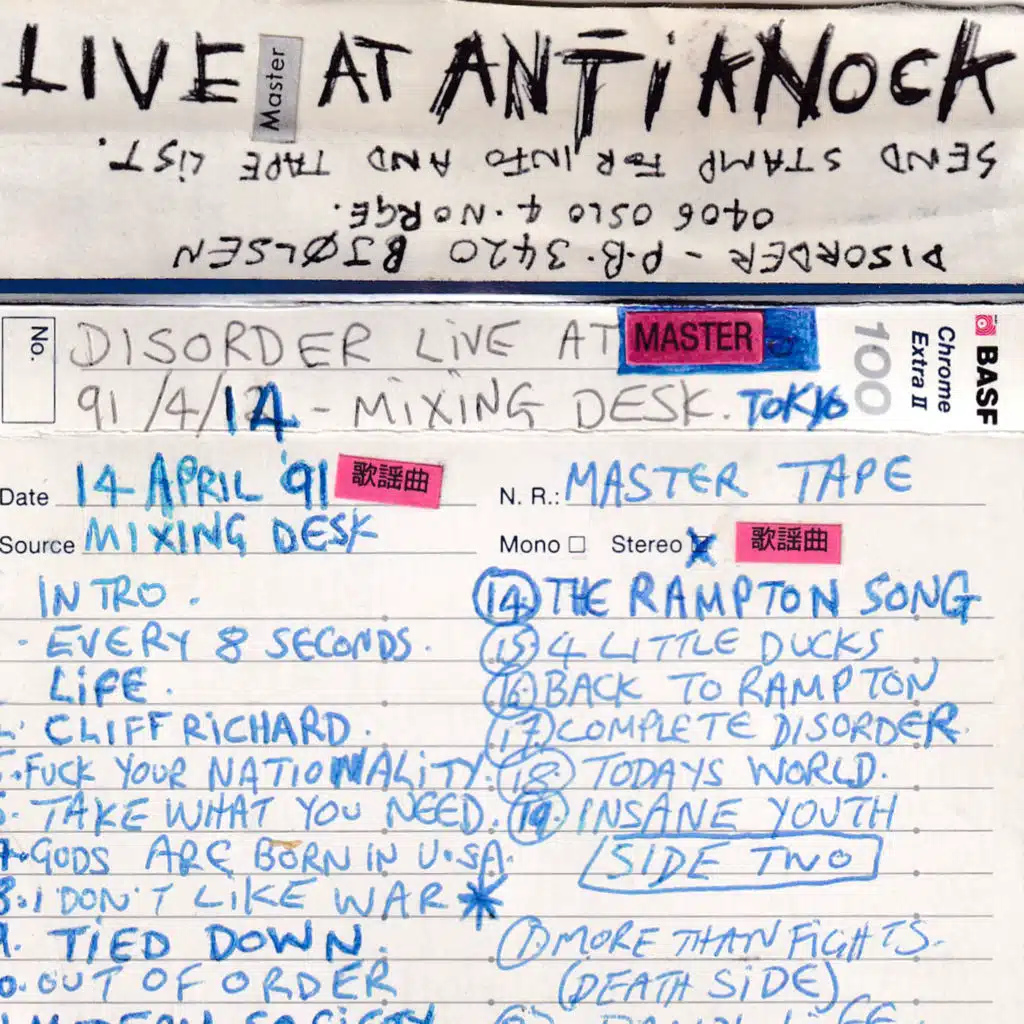 LIVE AT ANTiKNOCK
Master
SEND STAMP FOR INFO AND TAPE LIST.
0406 OSLO 4. NORGE.
DISORDER - P.B. 3420 BJØLSEN
No.
DISORDER LIVE AT
MASTER
91/4/14 - MIXING DESK. TOKYO
100
Chrome
Extra II
BASF
Date 14 APRIL '91 歌謡曲
N. R.: MASTER TAPE
Source MIXING DESK
Mono Stereo 歌謡曲
INTRO.
EVERY 8 SECONDS.
LIFE.
CLIFF RICHARD.
FUCK YOUR NATIONALITY.
TAKE WHAT YOU NEED.
7. GODS ARE BORN IN U.S.A.
8. I DON'T LIKE WAR *
9. TIED DOWN.
0. OUT OF ORDER
MODERN SOCIETY
14 THE RAMPTON SONG
15 4 LITTLE DUCKS
16 BACK TO RAMPTON
17 COMPLETE DISORDER.
18 TODAYS WORLD.
19 INSANE YOUTH
SIDE TWO
1. MORE THAN FIGHTS.
(DEATH SIDE)